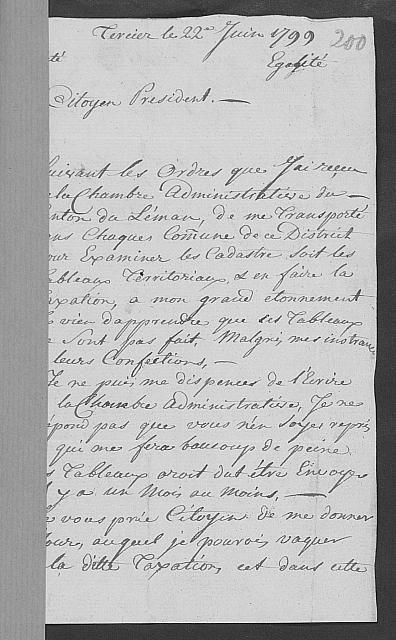 Tercier le 22.e Juin 1799
200
té Egalité
Citoyen President. —
Suivant les Ordres que J'ai receu
e la Chambre Administrative du —
anton du Léman, de me Transporté
ens Chaques Com̃une de ce District
our Examiner les Cadastre, soit les
ableaux Territoriaux, & en faire la
axation, a mon grand etonnement
e vien d'apprendre que ses Tableaux
e Sont pas fait, Malgré mes instance
leurs Confections, —
Je ne puis me dispences de l'Ecrire
la Chambre Administrative, Je ne
épond pas que vous n'en soyes repris
qui me fera beaucoup de peine.
s Tableaux oroit dut être Envoye
l y a un Mois au Moins, —
e vous prie Citoyin de me donner
Jour, auquel je pourois vaquer
la ditte Taxation, cet dans cette